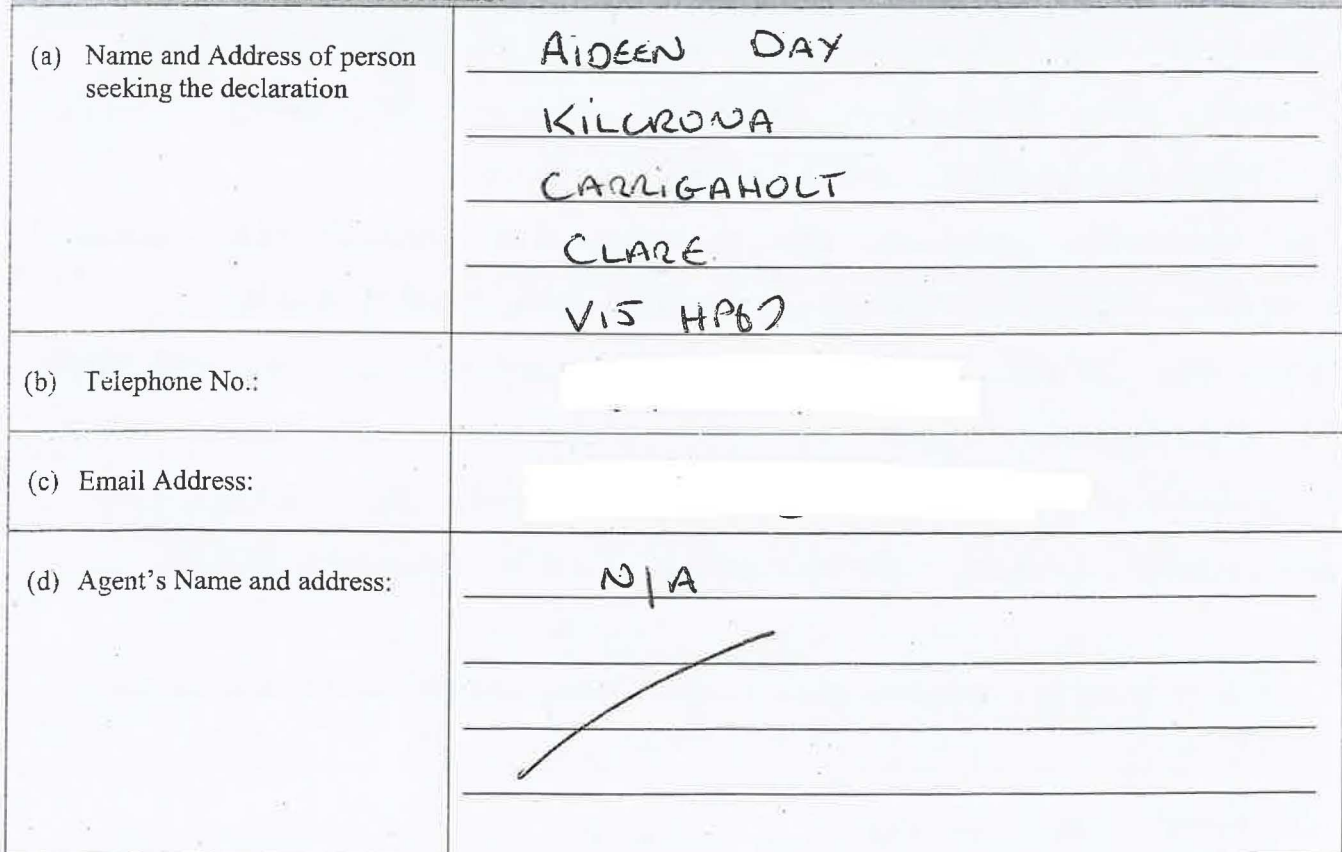 (a) Name and Address of person
seeking the declaration
AiDEEN DAY
KiLCRONA
CARRiGAHOLT
CLARE.
V15
(b) Telephone No.:
(c) Email Address:
(d) Agent's Name and address:
N/A